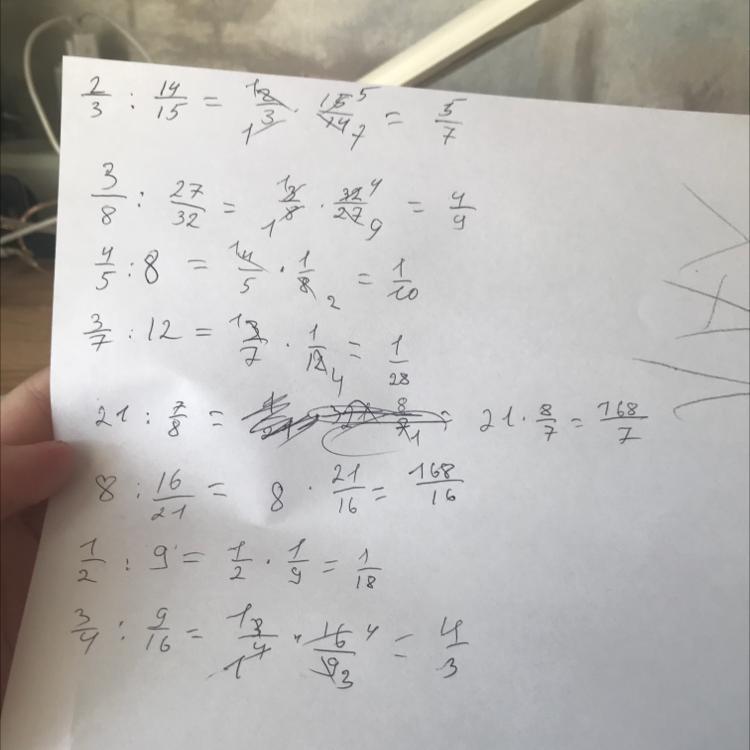 2/3 : 14/15 = 1 2/3 1 · 15/14 5 7 = 5/7
3/8 : 27/32 = 1 3/8 1 · 32/27 4 9 = 4/9
4/5 : 8 = 1 4/5 · 1/8 2 = 1/10
3/7 : 12 = 1 3/7 · 1/12 4 = 1/28
21 : 7/8 = 21 · 8/7 = 168/7
8 : 16/21 = 8 · 21/16 = 168/16
1/2 : 9 = 1/2 · 1/9 = 1/18
3/4 : 9/16 = 1 3/4 1 · 16/9 4 3 = 4/3